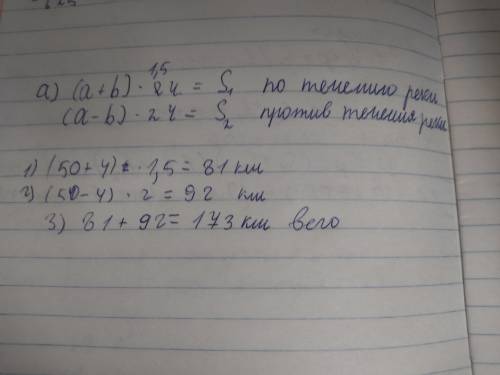 а) (a+b) · 1,5 ч = S₁ по течению реки
(a-b) · 2ч = S₂ против течения реки
1) (50+4) · 1,5 = 81 км
2) (50-4) · 2 = 92 км
3) 81 + 92 = 173 км всего